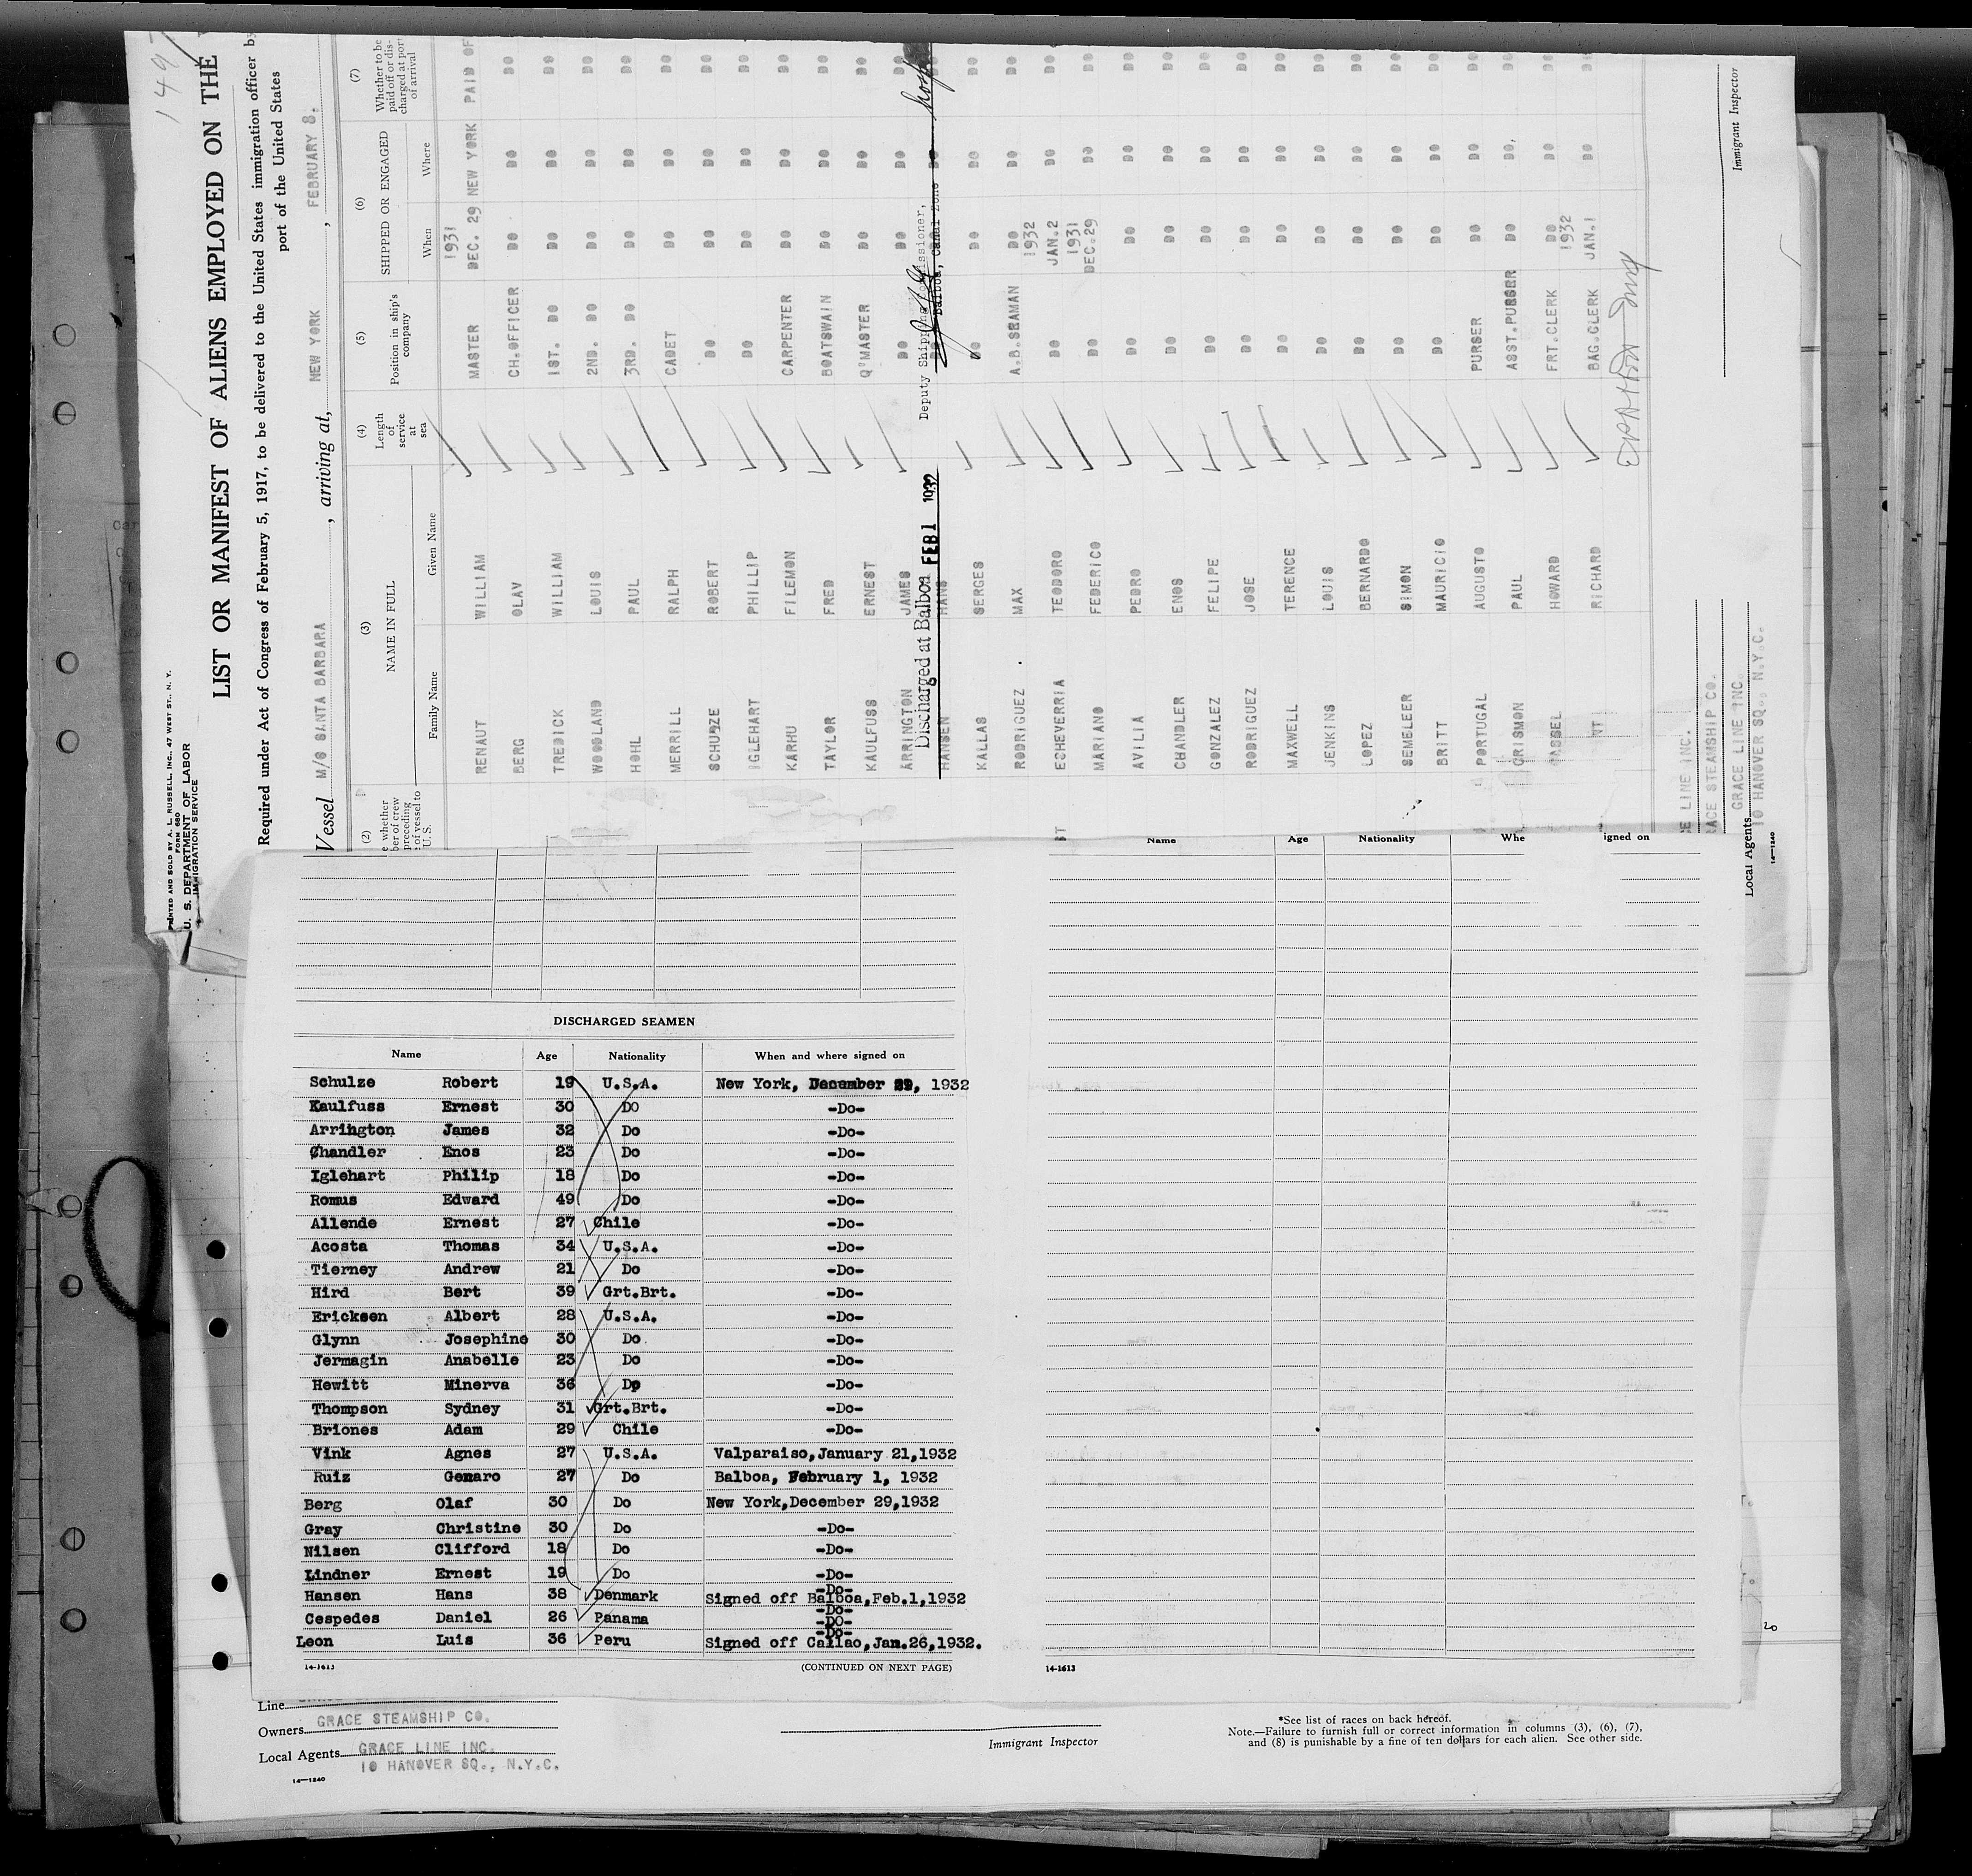 1497
PRINTED AND SOLD BY A. L. RUSSELL, INC., 47 WEST ST., N. Y.
FORM 680
U. S. DEPARTMENT OF LABOR
IMMIGRATION SERVICE
LIST OR MANIFEST OF ALIENS EMPLOYED ON THE
Required under Act of Congress of February 5, 1917, to be delivered to the United States immigration officer by
port of the United States
Vessel M/S SANTA BARBARA , arriving at, NEW YORK , FEBRUARY 8.
(2) (3) (4) (5) (6) (7)
NAME IN FULL
Family Name Given Name
Length of service at sea
Position in ship's company
SHIPPED OR ENGAGED
When Where
Whether to be paid off or discharged at port of arrival
1931
RENAUT WILLIAM MASTER DEC. 29 NEW YORK PAID OF
BERG OLAV CH.OFFICER DO DO DO
TREDICK WILLIAM 1ST. DO DO DO DO
WOODLAND LOUIS 2ND. DO DO DO DO
HOHL PAUL 3RD. DO DO DO DO
MERRILL RALPH CADET DO DO DO
SCHULZE ROBERT DO DO DO DO
IGLEHART PHILLIP DO DO DO DO
KARHU FILEMON CARPENTER DO DO DO
TAYLOR FRED BOATSWAIN DO DO DO
KAULFUSS ERNEST Q'MASTER DO DO DO
ARRINGTON JAMES DO DO DO DO
Discharged at Balboa FEB 1 1932 Deputy Shipping Commissioner,
Balboa, Canal Zone
HANSEN HANS
KALLAS SERGES DO DO DO DO
RODRIGUEZ MAX A.B.SEAMAN DO DO DO
1932
ECHEVERRIA TEODORO DO JAN.2 DO DO
1931
MARIANO FEDERICO DO DEC.29 DO DO
AVILIA PEDRO DO DO DO DO
CHANDLER ENOS DO DO DO DO
GONZALEZ FELIPE DO DO DO DO
RODRIGUEZ JOSE DO DO DO DO
MAXWELL TERENCE DO DO DO DO
JENKINS LOUIS DO DO DO DO
LOPEZ BERNARDO DO DO DO DO
SEMELEER SIMON DO DO DO DO
BRITT MAURICIO DO DO DO DO
PORTUGAL AUGUSTO PURSER DO DO DO
CRISMON PAUL ASST.PURSER DO DO, DO
HOWARD FRT.CLERK DO DO DO
1932
RICHARD BAG.CLERK JAN.1 DO DO
Immigrant Inspector
LINE INC.
GRACE STEAMSHIP CO.
Local Agents GRACE LINE INC.
10 HANOVER SQ., N.Y.C.
14—1240
DISCHARGED SEAMEN
Name Age Nationality When and where signed on
Schulze Robert 19 U.S.A. New York, December 29, 1932
Kaulfuss Ernest 30 DO -Do-
Arrington James 32 Do -Do-
Chandler Enos 23 Do -Do-
Iglehart Philip 18 Do -Do-
Romus Edward 49 Do -Do-
Allende Ernest 27 Chile -Do-
Acosta Thomas 34 U.S.A. -Do-
Tierney Andrew 21 Do -Do-
Hird Bert 39 Grt.Brt. -Do-
Ericksen Albert 28 U.S.A. -Do-
Glynn Josephine 30 Do -Do-
Jermagin Anabelle 23 Do -Do-
Hewitt Minerva 36 Do -Do-
Thompson Sydney 31 Grt.Brt. -Do-
Briones Adam 29 Chile -Do-
Vink Agnes 27 U.S.A. Valparaiso,January 21,1932
Ruiz Genaro 27 Do Balboa, February 1, 1932
Berg Olaf 30 Do New York,December 29,1932
Gray Christine 30 Do -Do-
Nilsen Clifford 18 Do -Do-
Lindner Ernest 19 Do -Do-
-Do-
Hansen Hans 38 Denmark Signed off Balboa,Feb.1,1932
-Do-
Cespedes Daniel 26 Panama -DO-
-Do-
Leon Luis 36 Peru Signed off Callao,Jan.26,1932.
14-1613 (CONTINUED ON NEXT PAGE)
Name Age Nationality Whe igned on
14-1613
20
Line
Owners GRACE STEAMSHIP CO.
Local Agents GRACE LINE INC.
10 HANOVER SQ., N.Y.C.
14—1240
Immigrant Inspector
*See list of races on back hereof.
Note.—Failure to furnish full or correct information in columns (3), (6), (7),
and (8) is punishable by a fine of ten dollars for each alien. See other side.